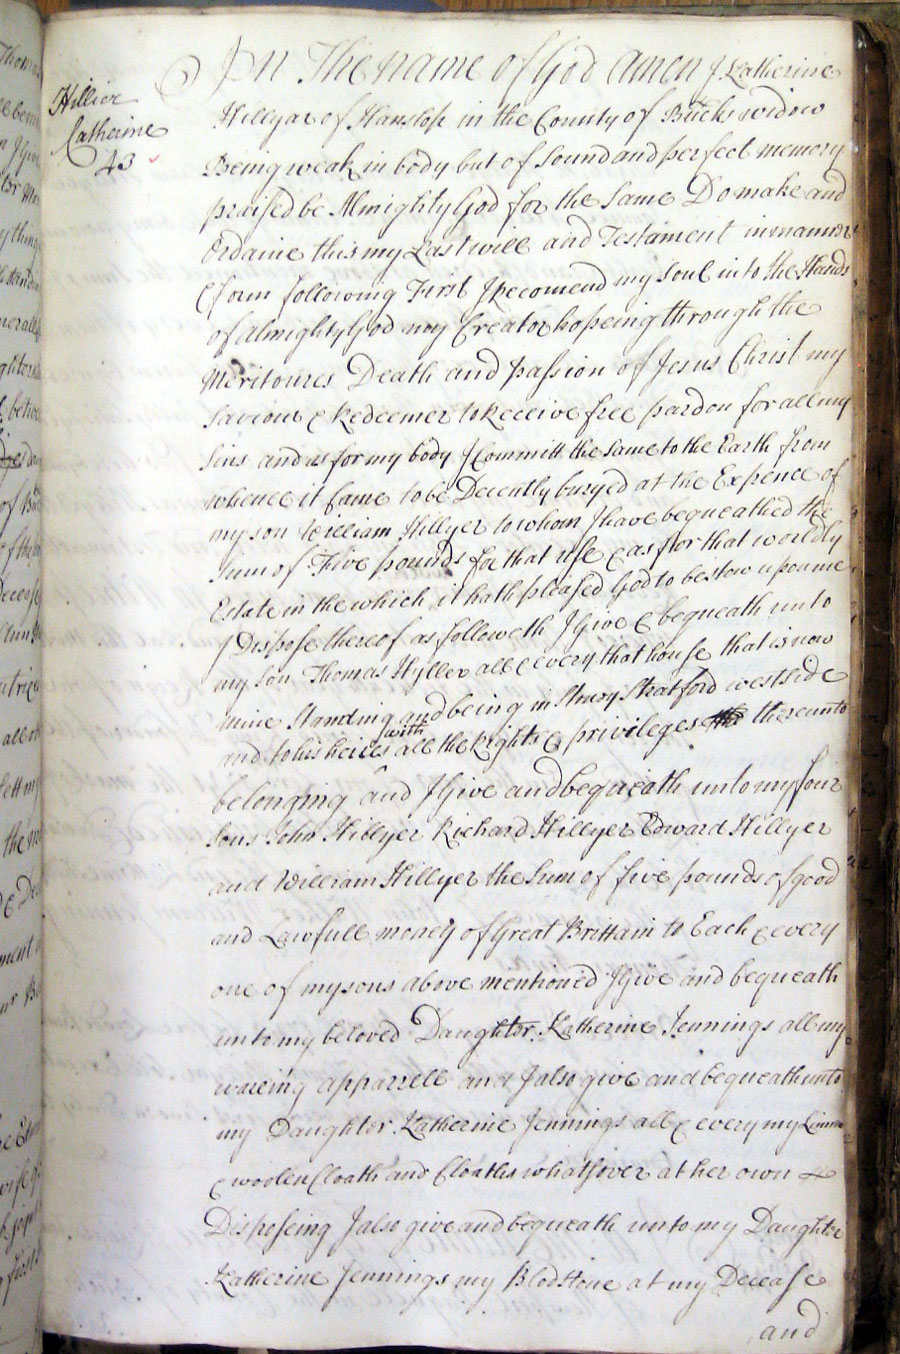 Hillier
Catherine
43
In The name of God Amen I Katherine
Hillyar of Hanslop in the County of Bucks widow
Being weak in body but of Sound and perfect memory
praised be Almighty God for the Same Do make and
Ordaine this my Last will and Testament in manner
& form following First I recomend my Soul into the Hands
of Almighty God my Creator hopeing through the
Meritoures Death and passion of Jesus Christ my
Saviour & Redeemer to Receive free pardon for all my
Sins and as for my body I Committ the Same to the Earth from
whence it Came to be Decently buryed at the Expence of
my son William Hillyer to whom I have bequeathed the
Sum of Five pounds for that use & as for that worldly
Estate in the which it hath pleased God to bestow upon me
I Dispose thereof as followeth I Give & bequeath unto
my son Thomas Hyller all & every that house that is now
mine Standing and being in Stony Stratford westside
and to his heires with all the Rights & privileges thereunto
belonging and I Give and bequeath unto my four
Sons John Hillyer Richard Hillyer Edward Hillyer
and William Hillyer the Sum of five pounds of good
and Lawfull money of Great Brittain to Each & every
one of my sons above mentioned I Give and bequeath
unto my beloved Daughter Katherine Jennings all my
wareing apparrell and I also give and bequeath unto
my Daughter Katherine Jennings all & every my Linnen
& woolen Cloath and Cloaths whatsover at her own
Disposeing I also give and bequeath unto my Daughter
Katherine Jennings my Blodstone at my Decease
and